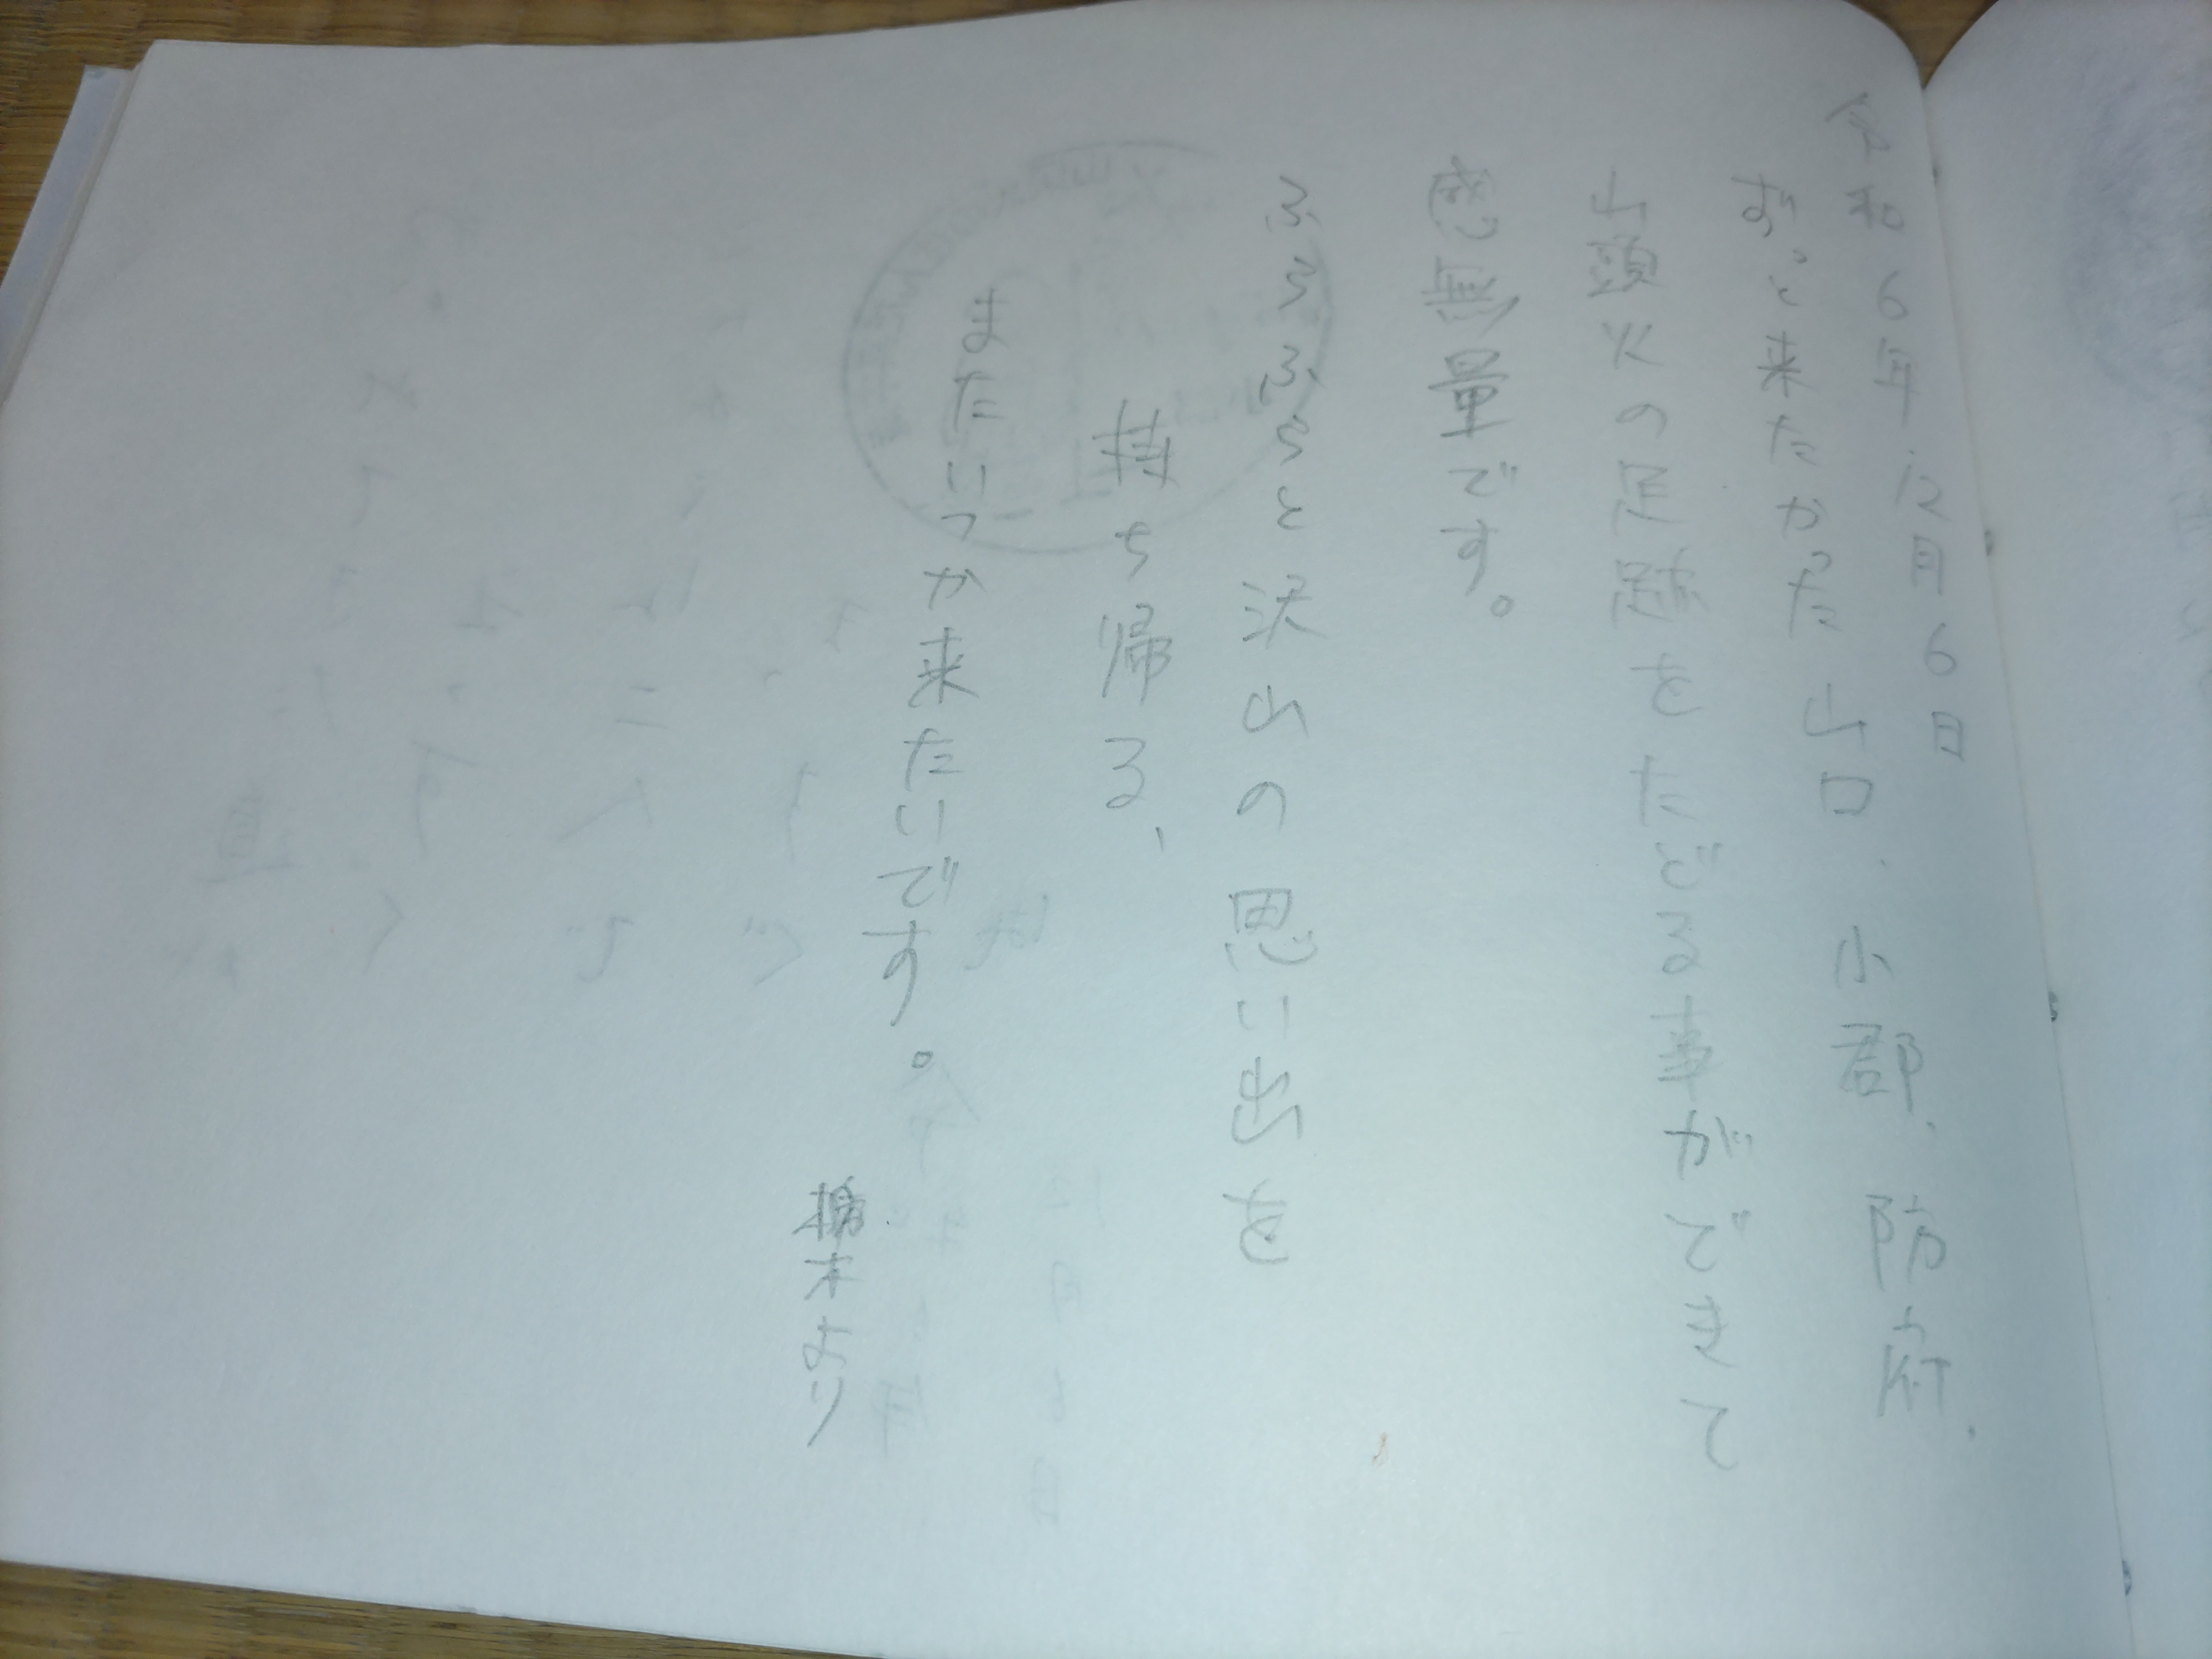 令和6年12月6日
ずっと来たかった山口・小郡・防府・
山頭火の足跡をたどる事ができて
感無量です。
ふらふらと沢山の思い出を
持ち帰る、
またいつか来たいです。
栃木より